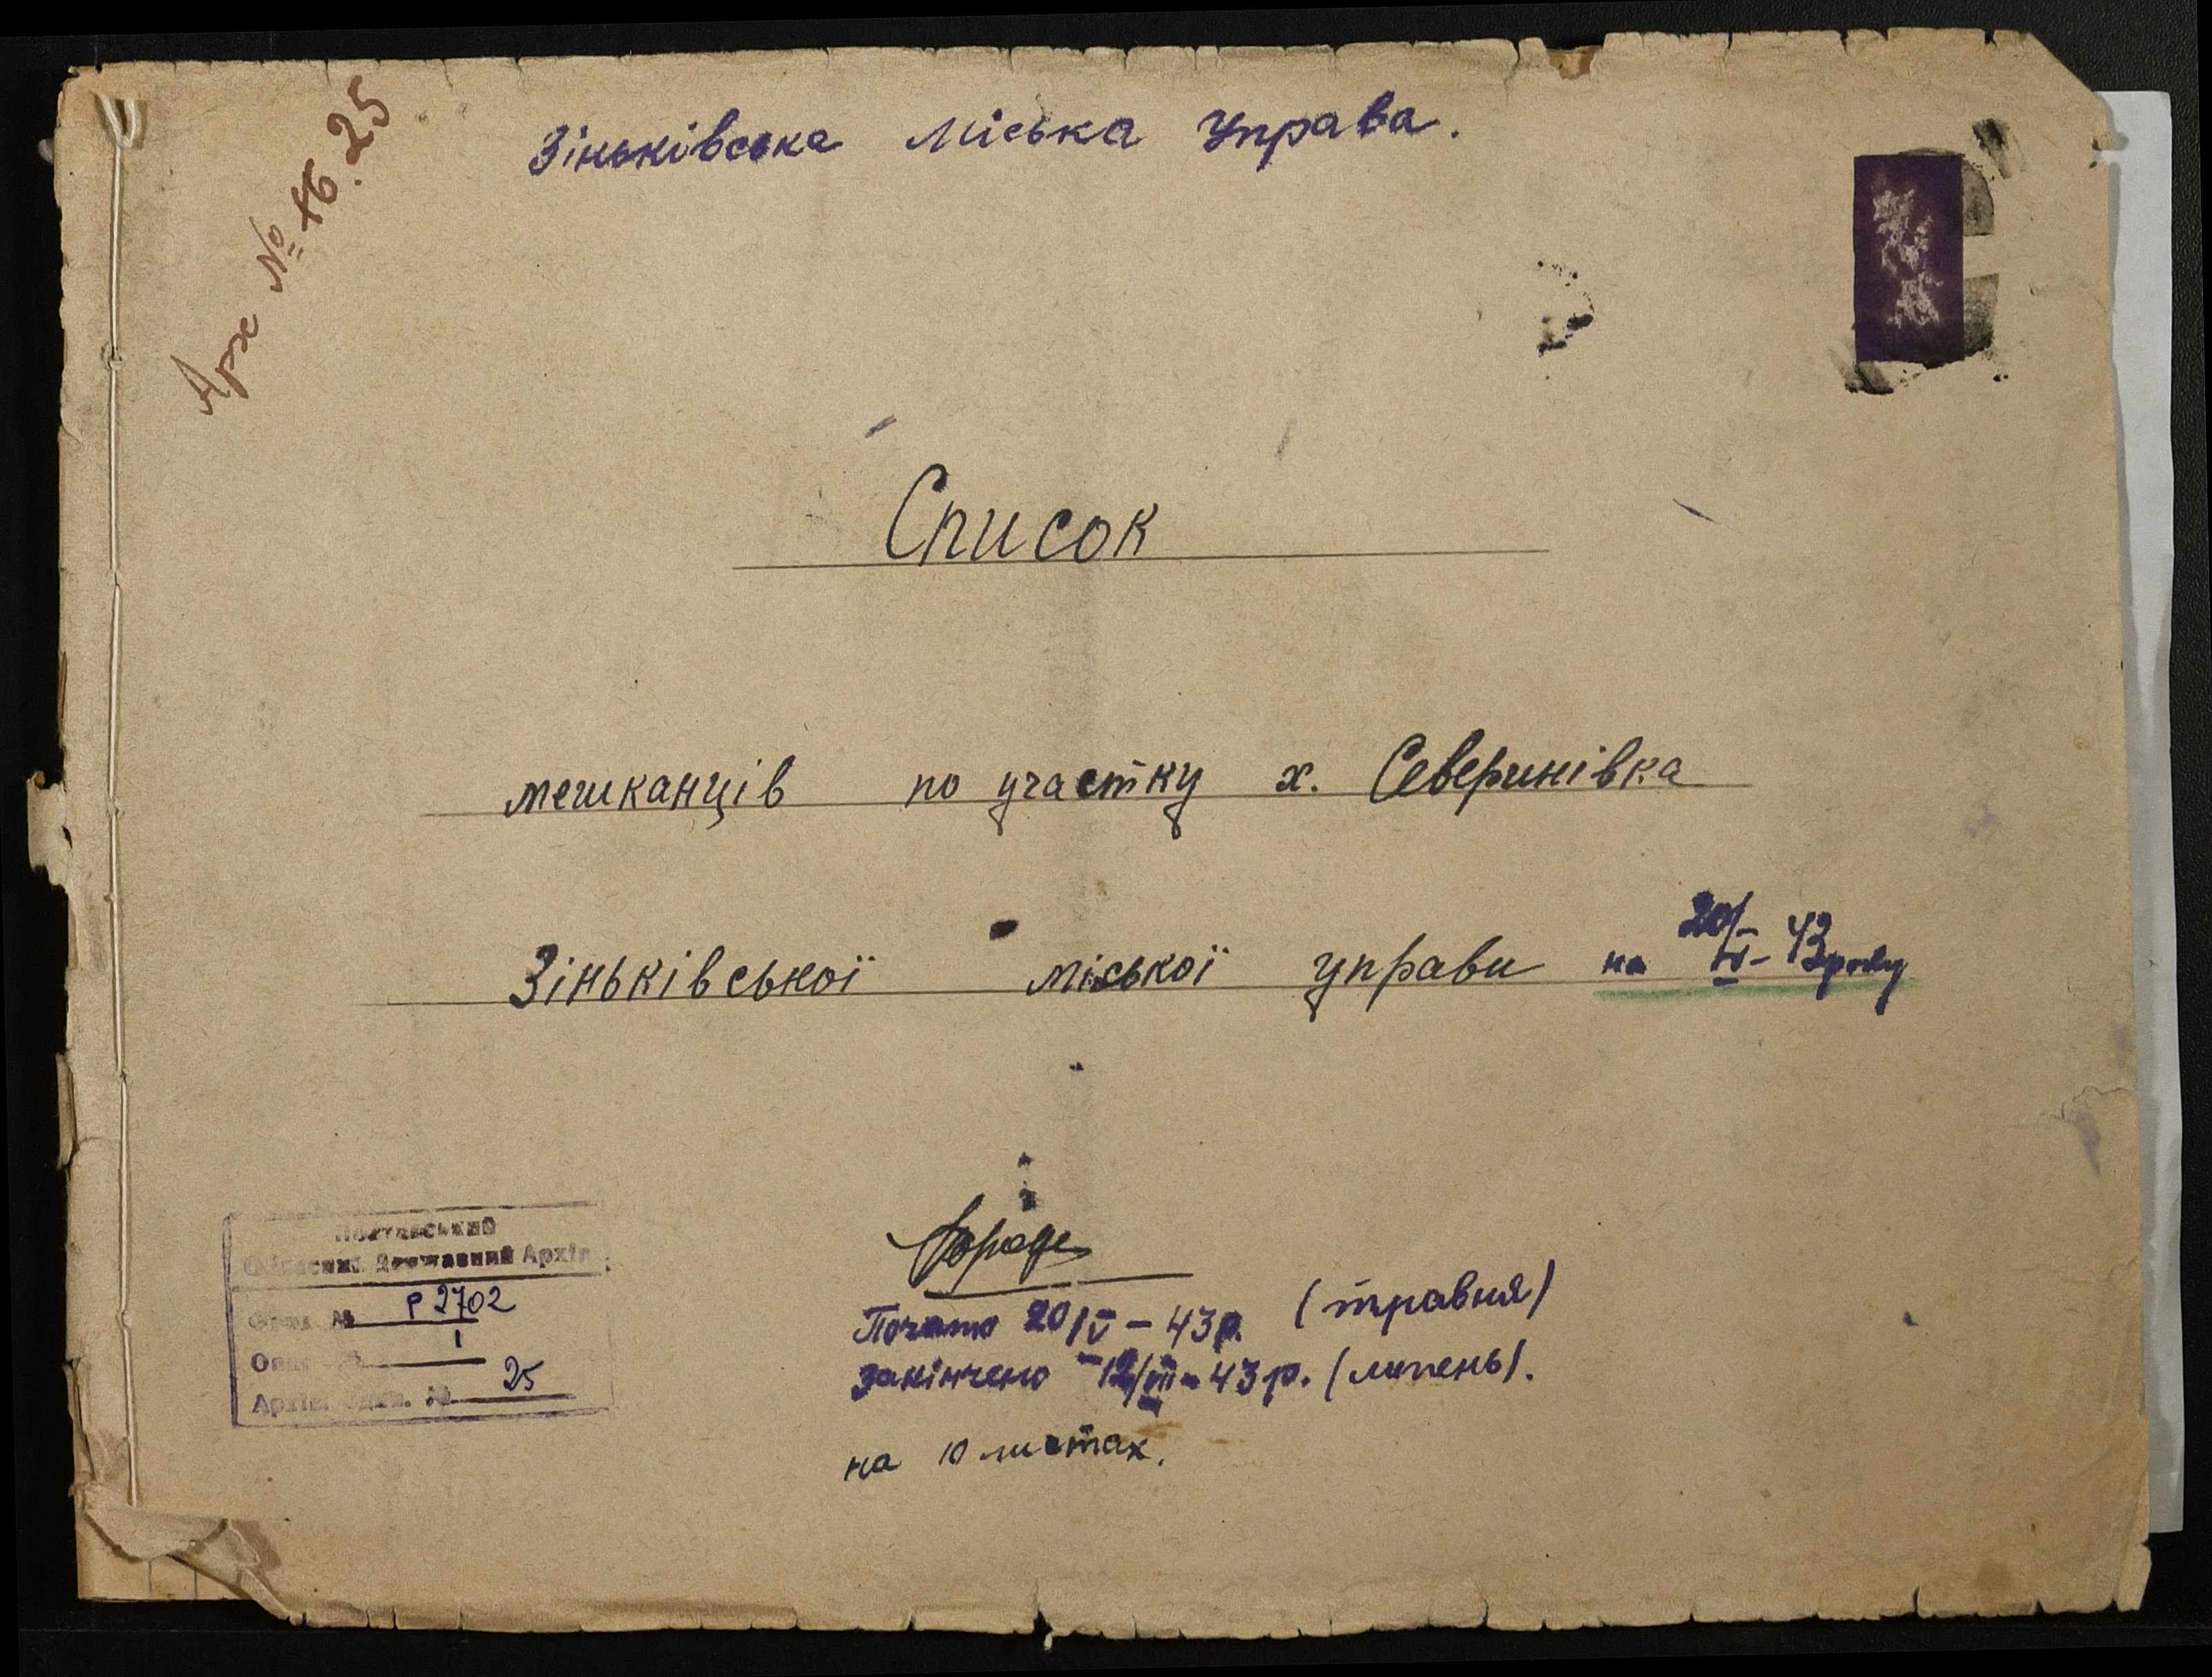 Арх № 16. 25
Зіньківська Міська Управа.
Список
мешканців по участку х. Северинівка
Зіньківської міської управи на 20/V-43 року
Почато 20/V - 43 р. (травня)
закінчено 12/VII - 43 р. (липень).
на 10 листах.
Полтавський
Обласний Державний Архів
Фонд № Р 2702
Опис № 1
Архів. один. № 25